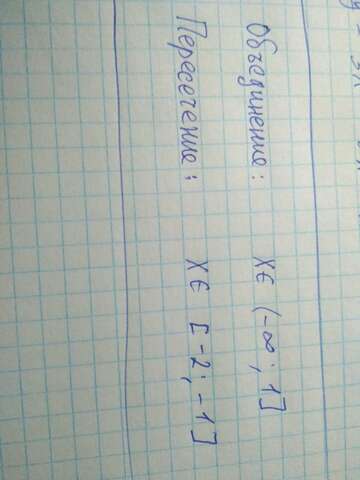 Объединение: X∈ (-∞; 1]
Пересечение: X∈ [-2; -1]